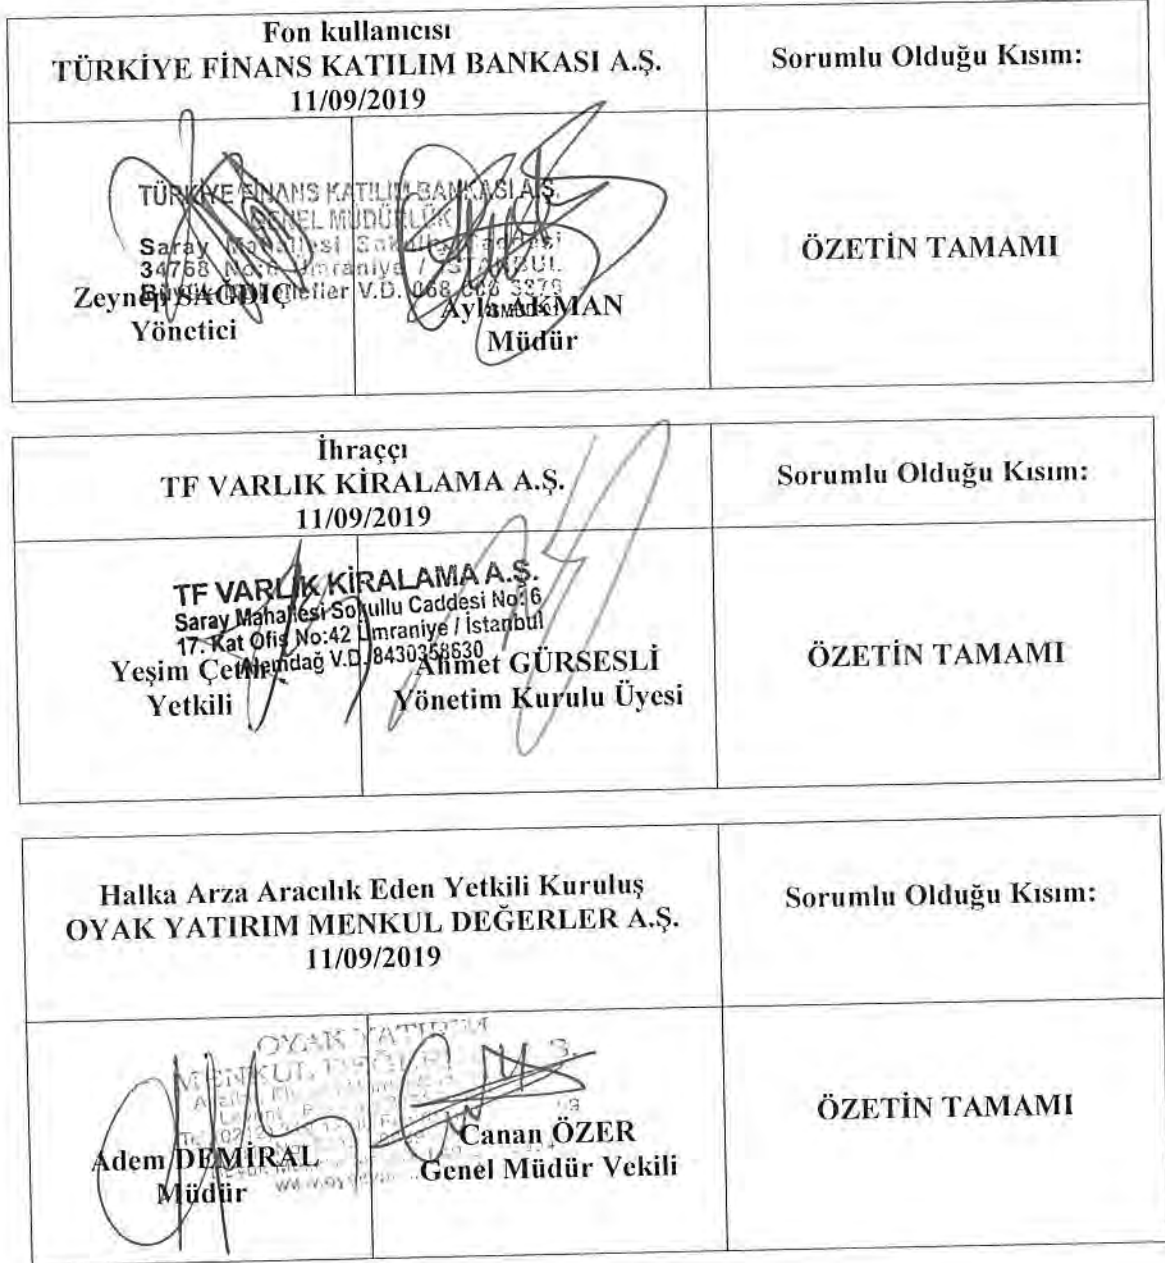 Fon kullanıcısı
TÜRKİYE FİNANS KATILIM BANKASI A.Ş.
11/09/2019
Sorumlu Olduğu Kısım:
TÜRKİYE FİNANS KATILIM BANKASI A.Ş.
GENEL MÜDÜRLÜK
Saray Mahallesi Sokullu Caddesi
34768 No:6 Ümraniye / İSTANBUL
V.D. 068
Zeynep SAĞDIÇ
Yönetici
Ayla AKMAN
Müdür
ÖZETİN TAMAMI
İhraççı
TF VARLIK KİRALAMA A.Ş.
11/09/2019
Sorumlu Olduğu Kısım:
TF VARLIK KİRALAMA A.Ş.
Saray Mahallesi Sokullu Caddesi No: 6
17. Kat Ofis No:42 Ümraniye / İstanbul
Alemdağ V.D. 8430358630
Yeşim Çetin
Yetkili
Ahmet GÜRSESLİ
Yönetim Kurulu Üyesi
ÖZETİN TAMAMI
Halka Arza Aracılık Eden Yetkili Kuruluş
OYAK YATIRIM MENKUL DEĞERLER A.Ş.
11/09/2019
Sorumlu Olduğu Kısım:
OYAK YATIRIM
MENKUL
Adem DEMİRAL
Müdür
Canan ÖZER
Genel Müdür Vekili
ÖZETİN TAMAMI